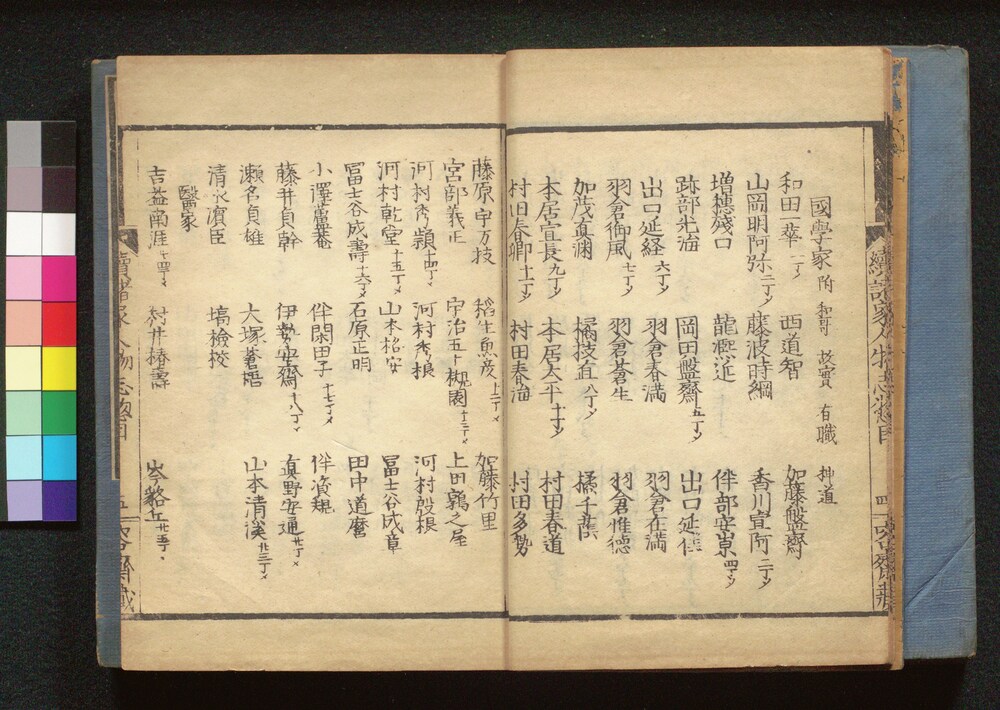 國學家 附 和哥 故實 有職 神道
和田一華 一丁ゟ 西道智 加藤盤齋
山岡明阿弥 二丁ゟ 藤波時綱 香川宣阿 三丁ゟ
増穂殘口 龍凞近 伴部安崇 四丁ゟ
跡部光海 岡田盤齋 五丁ゟ 出口延佳
出口延経 六丁ゟ 羽倉春満 羽倉在満
羽倉御風 七丁ゟ 羽倉蒼生 羽倉惟徳
加茂真淵 橘枝直 八丁ゟ 橘千蔭
本居宣長 九丁ゟ 本居太平 十丁ゟ 村田春道
村田春郷 十一丁ゟ 村田春海 村田多勢
藤原宇万伎 稻生魚彦 上二丁メ 加藤竹里
宮部義正 宇治五十槻園 十三丁メ 上田鶉之屋
河村秀穎 十四丁メ 河村秀根 河村殷根
河村乾堂 十五丁メ 山本格安 冨士谷成章
冨士谷成壽 十六丁メ 石原正明 田中道麿
小澤蘆菴 伴閑田子 十七丁メ 伴資規
藤井貞幹 伊勢安齋 十八丁メ 真野安通 廿丁メ
瀬名貞雄 大塚蒼梧 山本清溪 廿三丁メ
清水濵臣 塙檢挍
醫家
吉益南涯 廿四丁メ 村井椿壽 岑貉丘 廿五丁
續諸家人物志惣目 四
續諸家人物志惣目 五